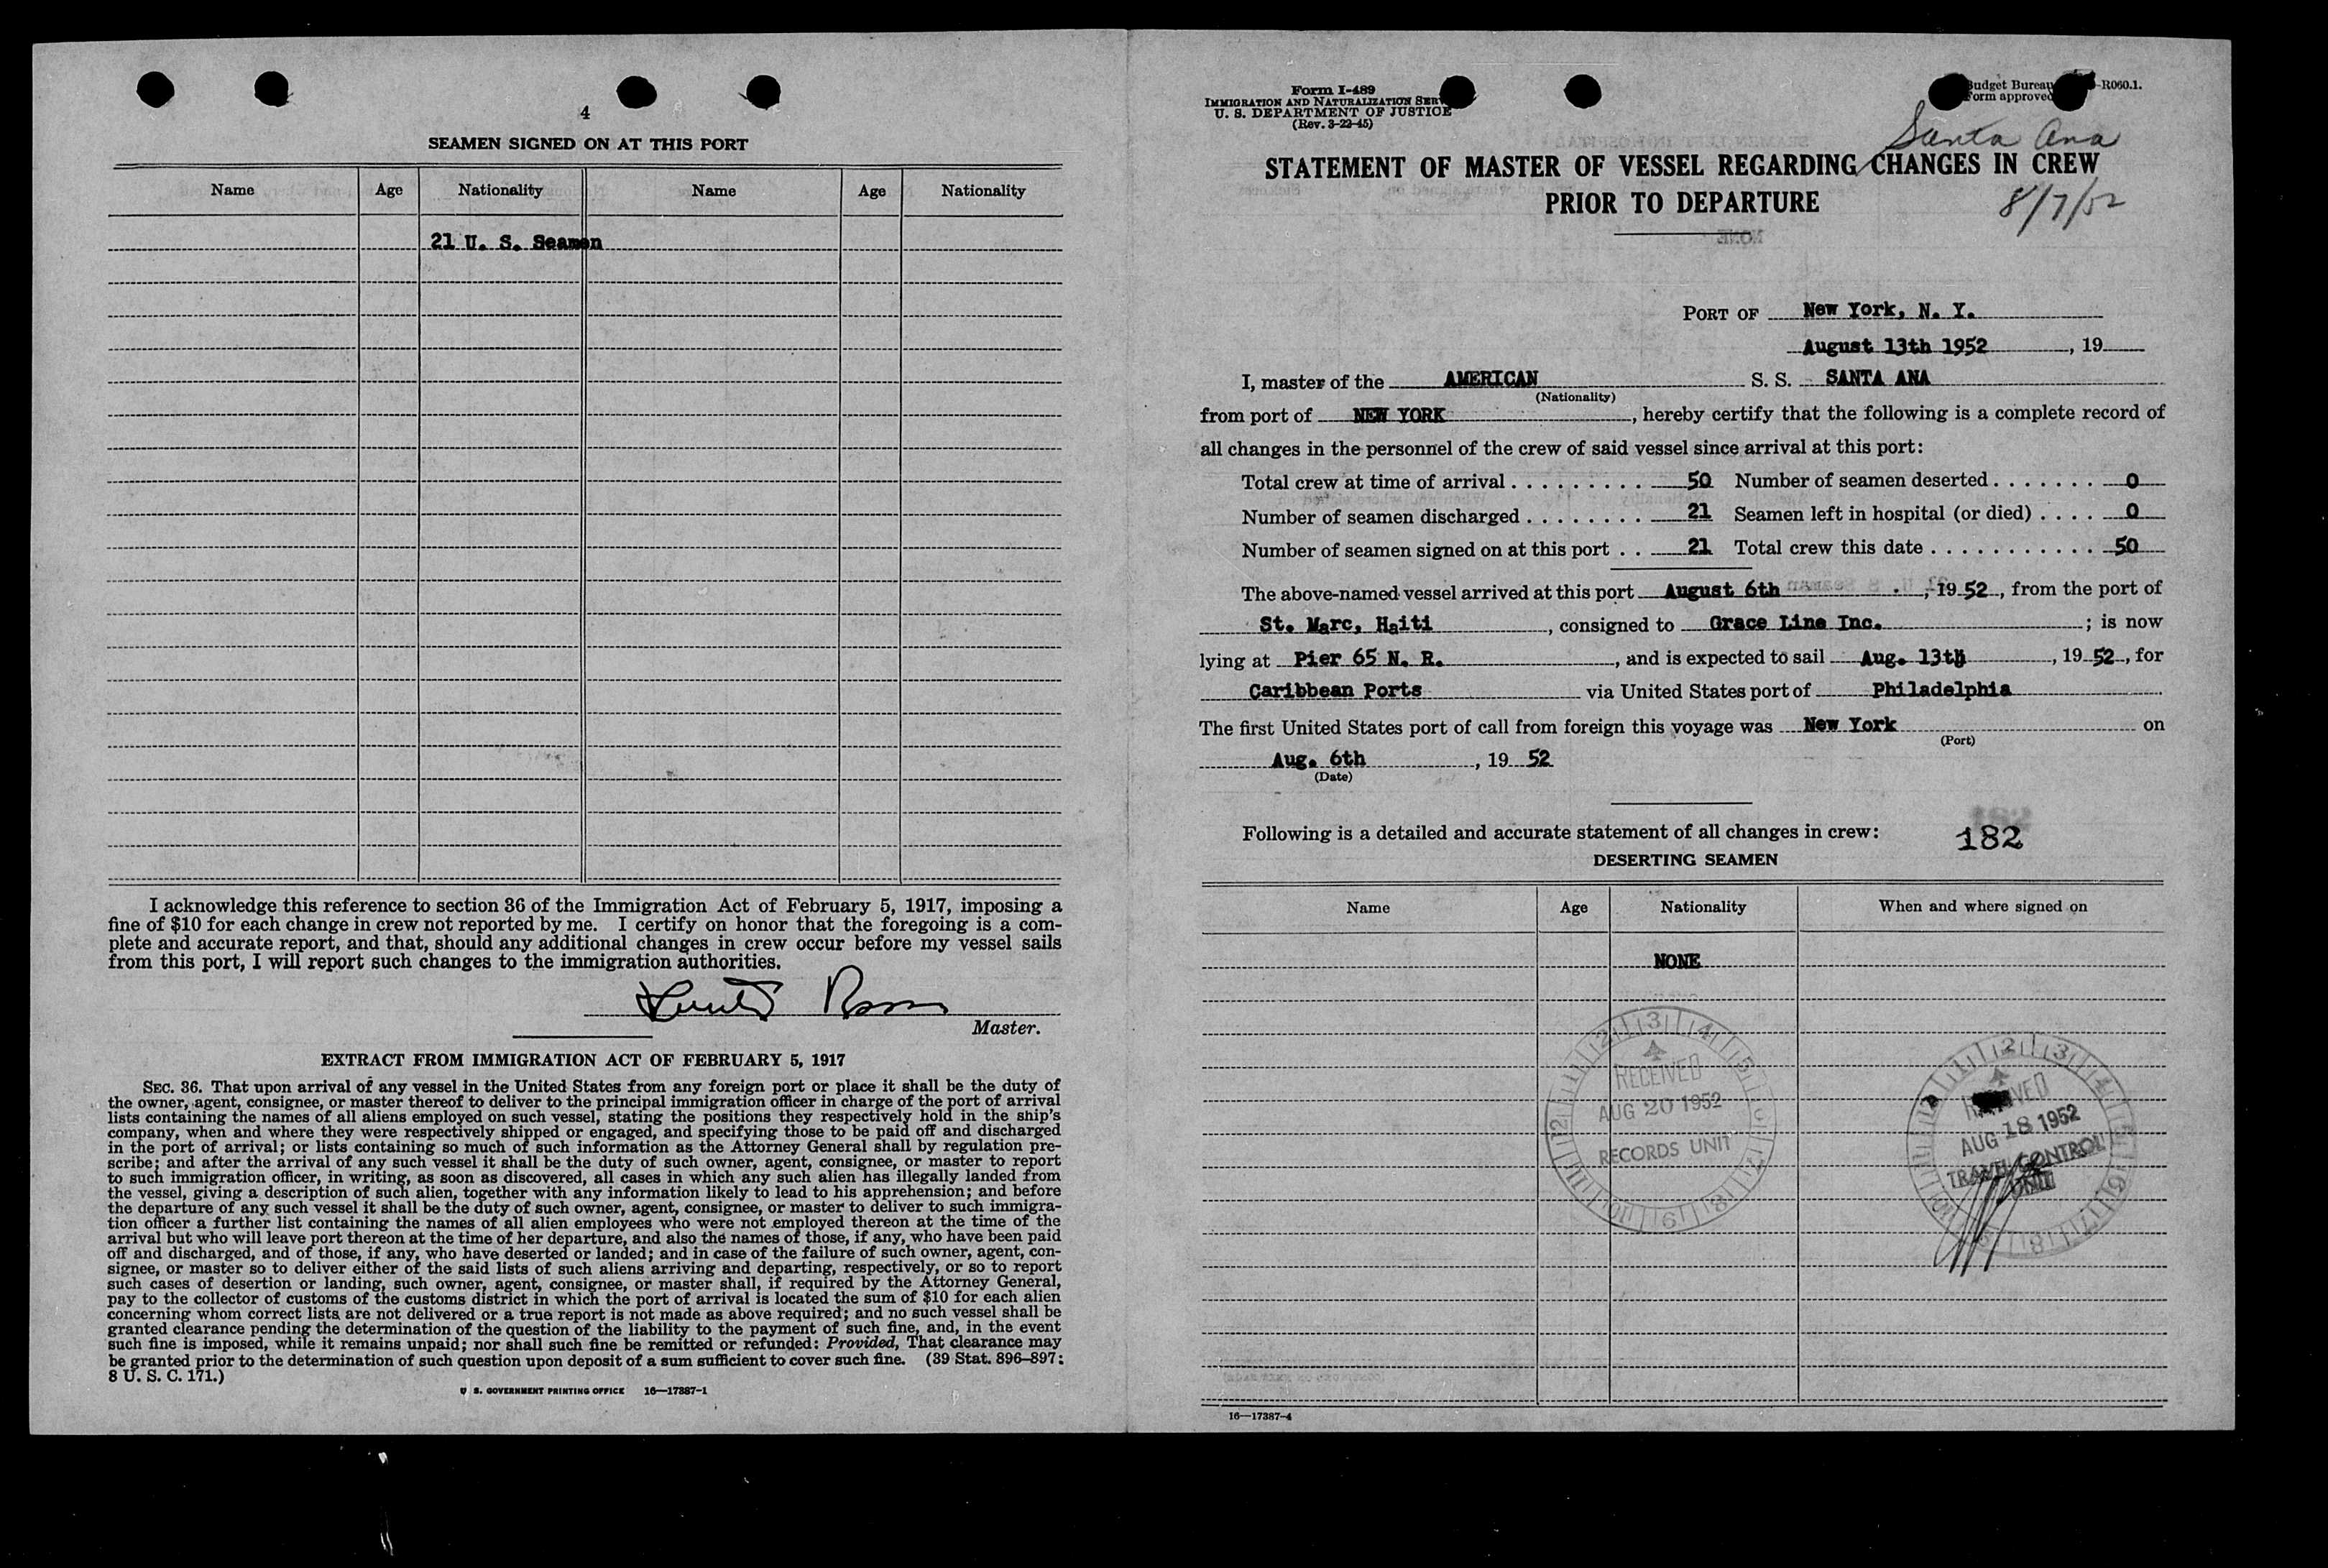 4
SEAMEN SIGNED ON AT THIS PORT
Name Age Nationality Name Age Nationality
21 U. S. Seamen
I acknowledge this reference to section 36 of the Immigration Act of February 5, 1917, imposing a
fine of $10 for each change in crew not reported by me. I certify on honor that the foregoing is a com-
plete and accurate report, and that, should any additional changes in crew occur before my vessel sails
from this port, I will report such changes to the immigration authorities.
Master.
EXTRACT FROM IMMIGRATION ACT OF FEBRUARY 5, 1917
SEC. 36. That upon arrival of any vessel in the United States from any foreign port or place it shall be the duty of
the owner, agent, consignee, or master thereof to deliver to the principal immigration officer in charge of the port of arrival
lists containing the names of all aliens employed on such vessel, stating the positions they respectively hold in the ship's
company, when and where they were respectively shipped or engaged, and specifying those to be paid off and discharged
in the port of arrival; or lists containing so much of such information as the Attorney General shall by regulation pre-
scribe; and after the arrival of any such vessel it shall be the duty of such owner, agent, consignee, or master to report
to such immigration officer, in writing, as soon as discovered, all cases in which any such alien has illegally landed from
the vessel, giving a description of such alien, together with any information likely to lead to his apprehension; and before
the departure of any such vessel it shall be the duty of such owner, agent, consignee, or master to deliver to such immigra-
tion officer a further list containing the names of all alien employees who were not employed thereon at the time of the
arrival but who will leave port thereon at the time of her departure, and also the names of those, if any, who have been paid
off and discharged, and of those, if any, who have deserted or landed; and in case of the failure of such owner, agent, con-
signee, or master so to deliver either of the said lists of such aliens arriving and departing, respectively, or so to report
such cases of desertion or landing, such owner, agent, consignee, or master shall, if required by the Attorney General,
pay to the collector of customs of the customs district in which the port of arrival is located the sum of $10 for each alien
concerning whom correct lists are not delivered or a true report is not made as above required; and no such vessel shall be
granted clearance pending the determination of the question of the liability to the payment of such fine, and, in the event
such fine is imposed, while it remains unpaid; nor shall such fine be remitted or refunded: Provided, That clearance may
be granted prior to the determination of such question upon deposit of a sum sufficient to cover such fine. (39 Stat. 896–897;
8 U. S. C. 171.)
U. S. GOVERNMENT PRINTING OFFICE 16—17387-1
Form I-489
IMMIGRATION AND NATURALIZATION
U. S. DEPARTMENT OF JUSTICE
(Rev. 3-22-45)
Budget Bureau -R060.1.
Form approved
Santa Ana
STATEMENT OF MASTER OF VESSEL REGARDING CHANGES IN CREW
PRIOR TO DEPARTURE
8/7/52
PORT OF New York, N. Y.
August 13th 1952, 19
I, master of the AMERICAN S. S. SANTA ANA
(Nationality)
from port of NEW YORK, hereby certify that the following is a complete record of
all changes in the personnel of the crew of said vessel since arrival at this port:
Total crew at time of arrival . . . . . . . . . 50 Number of seamen deserted . . . . . . . 0
Number of seamen discharged . . . . . . . . 21 Seamen left in hospital (or died) . . . . 0
Number of seamen signed on at this port . . 21 Total crew this date . . . . . . . . . . . 50
The above-named vessel arrived at this port August 6th, 19 52, from the port of
St. Marc, Haiti, consigned to Grace Line Inc. ; is now
lying at Pier 65 N. R., and is expected to sail Aug. 13th, 19 52, for
Caribbean Ports via United States port of Philadelphia
The first United States port of call from foreign this voyage was New York on
(Port)
Aug. 6th, 19 52
(Date)
Following is a detailed and accurate statement of all changes in crew: 182
DESERTING SEAMEN
Name Age Nationality When and where signed on
NONE
RECEIVED
AUG 20 1952
RECORDS UNIT
AUG 18 1952
TRAVEL CONTROL
UNIT
16—17387-4